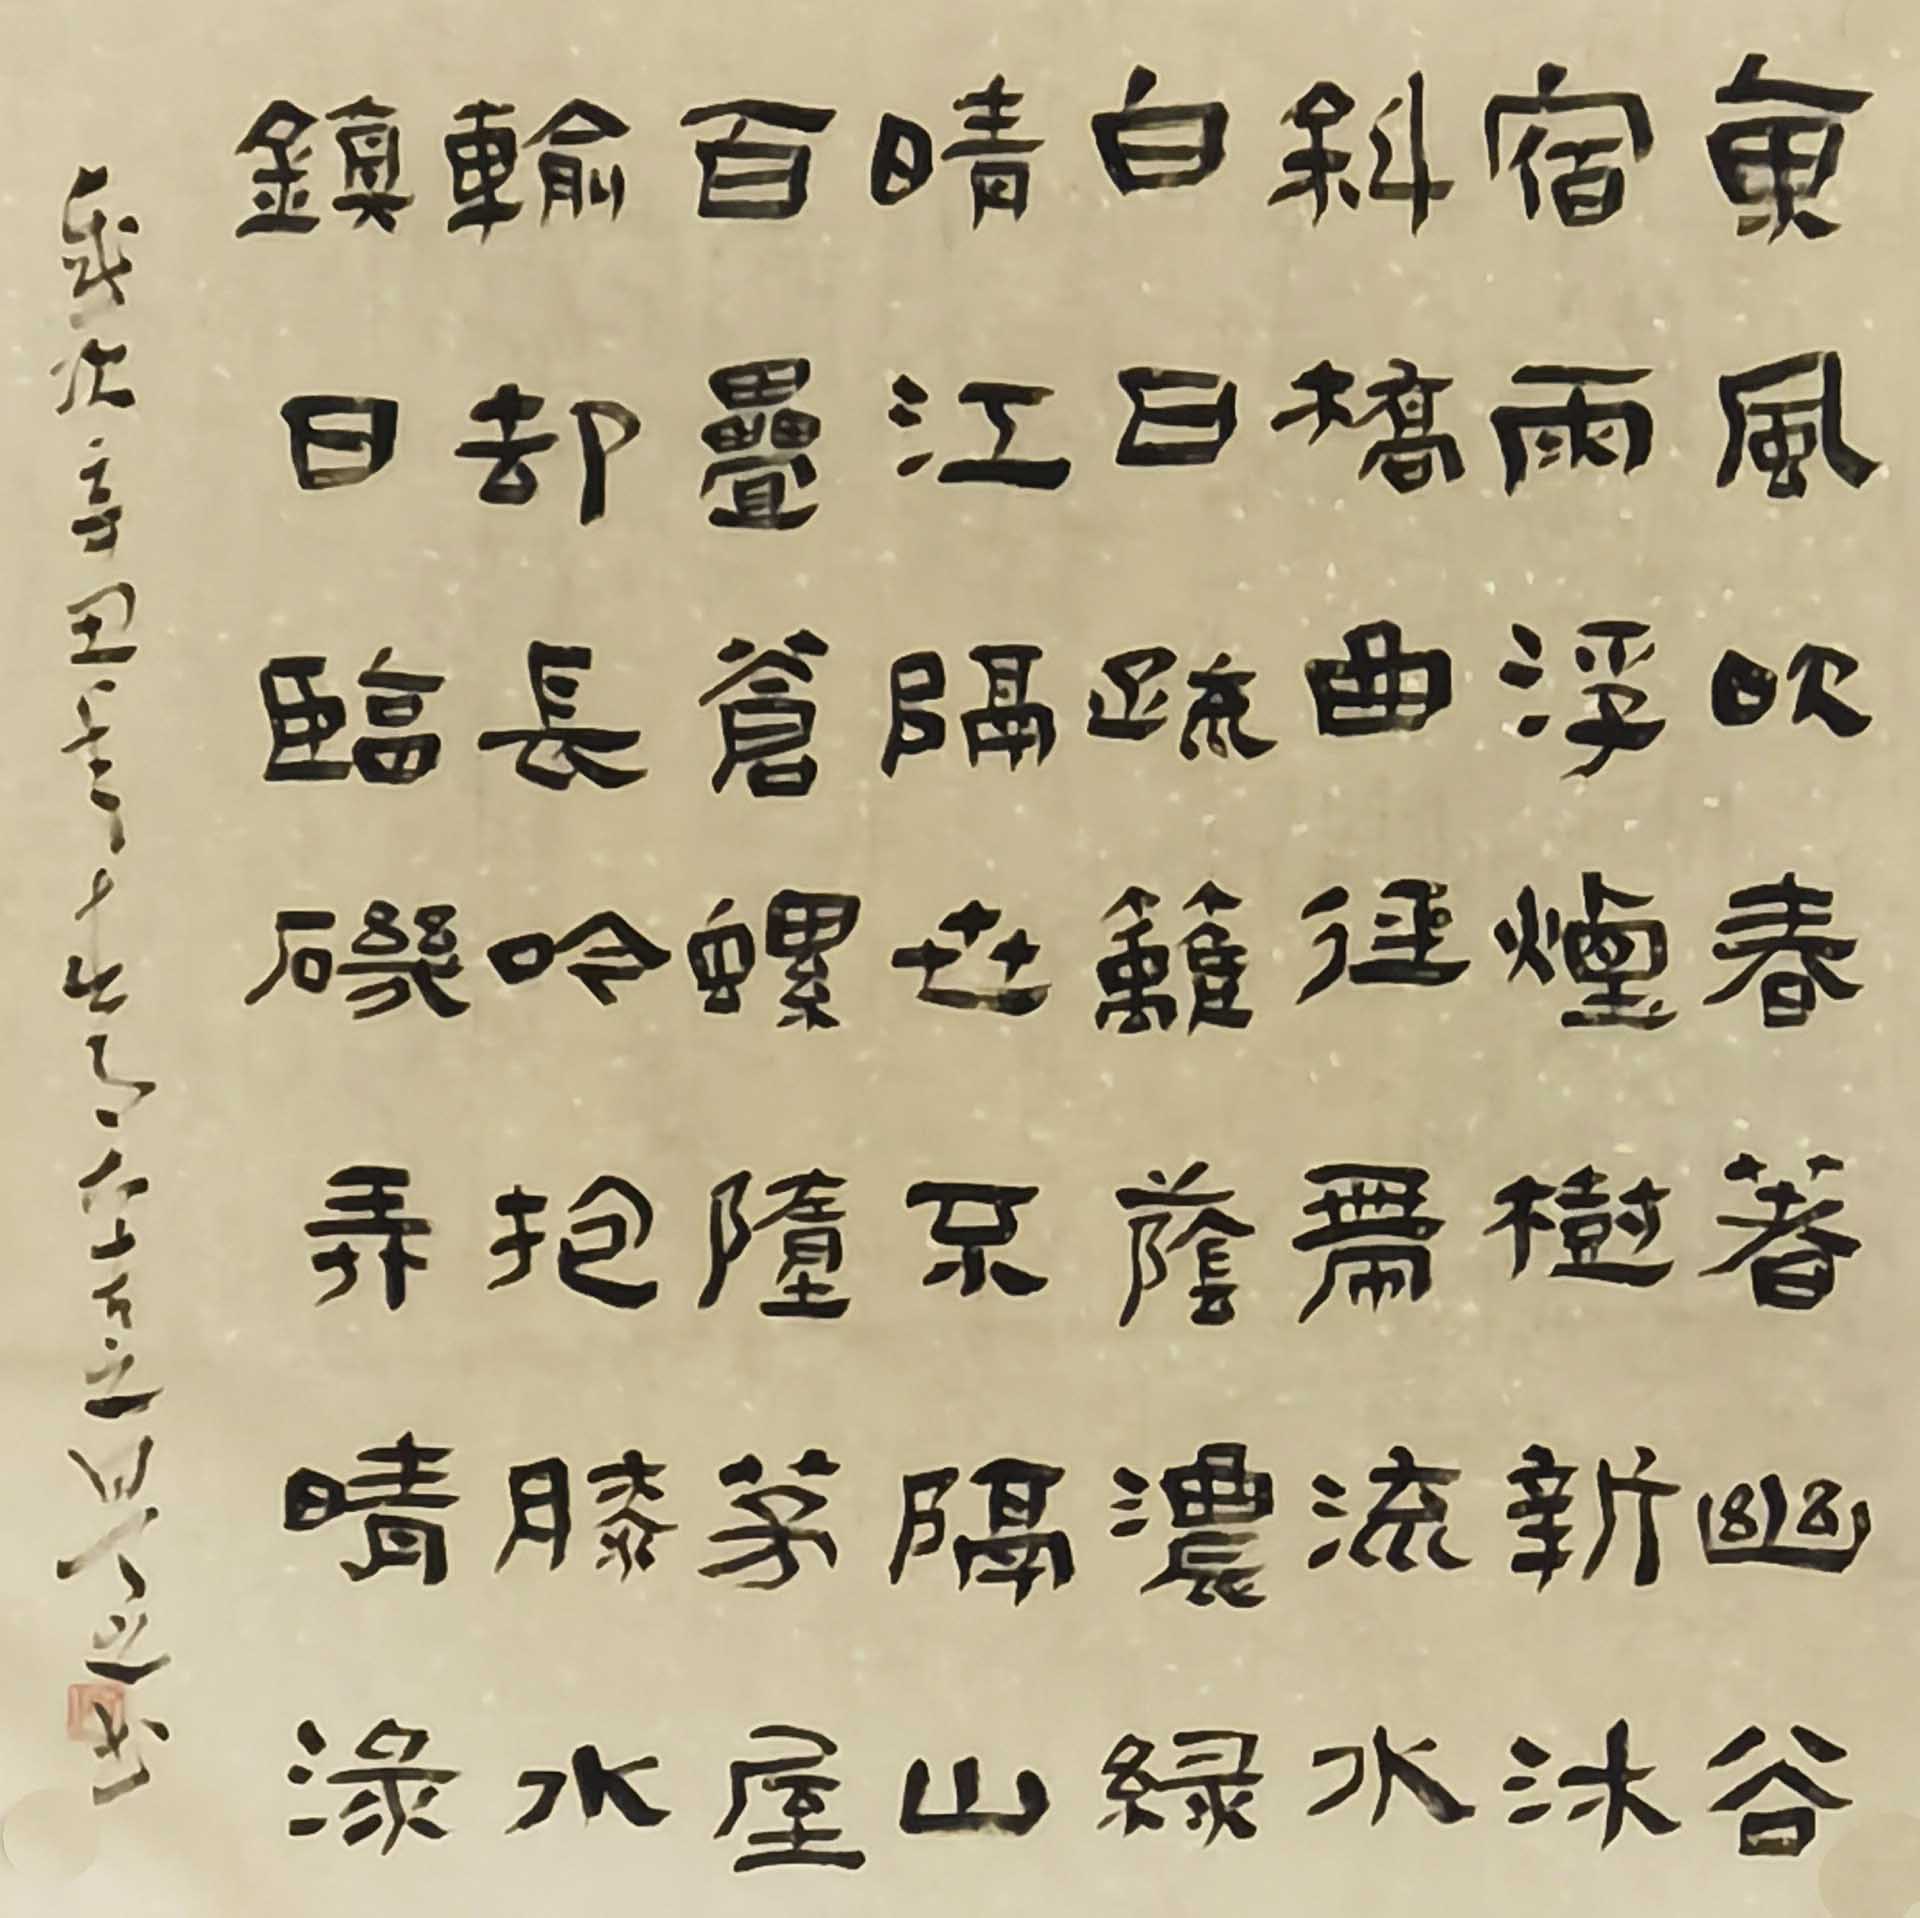 東風吹春著幽谷
宿雨浮煙樹新沐
斜橋曲徑帶流水
白日疏籬蔭濃綠
晴江隔世不隔山
百疊蒼螺墮茅屋
輸却長吟抱膝水
鎮日臨磯弄晴淥
歲次辛丑